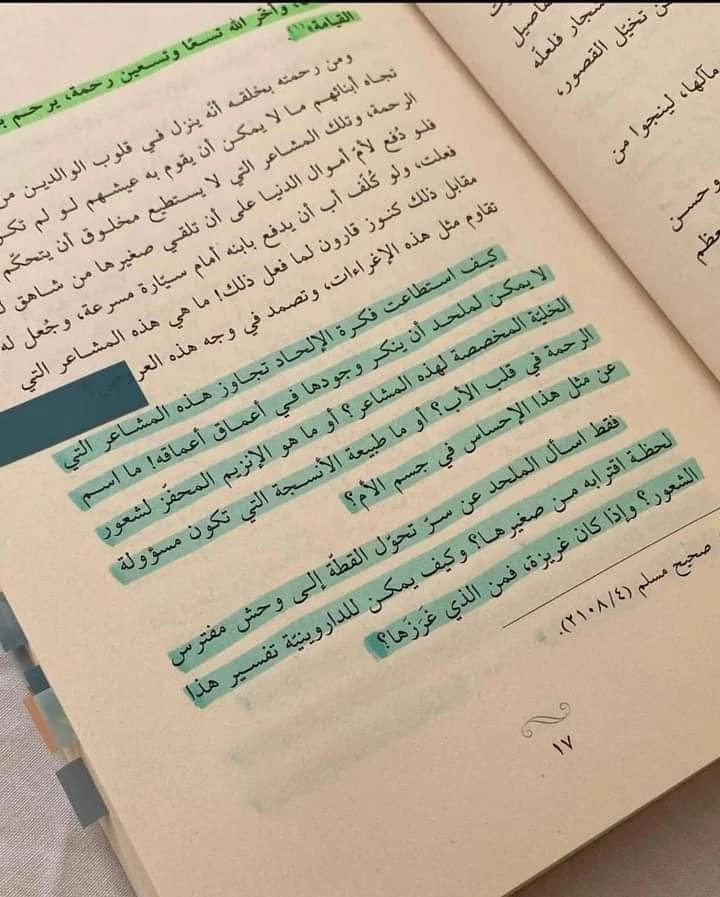 وأخّر الله تسعًا وتسعين رحمة، يرحم
القيامة»(١).
ومن رحمته بخلقه أنّه ينزل في قلوب الوالدين من
تجاه أبنائهم ما لا يمكن أن يقوم به عيشهم لو لم تكن
الرحمة، وتلك المشاعر التي لا يستطيع مخلوق أن يتحكّم
فلو دُفع لأمّ أموال الدنيا على أن تلقي صغيرها من شاهق
فعلت، ولو كُلّف أب أن يدفع بابنه أمام سيّارة مسرعة، وجُعل له
مقابل ذلك كنوز قارون لما فعل ذلك! ما هي هذه المشاعر التي
تقاوم مثل هذه الإغراءات، وتصمد في وجه هذه
كيف استطاعت فكرة الإلحاد تجاوز هذه المشاعر التي
لا يمكن لملحد أن ينكر وجودها في أعماق أعماقه! ما اسم
الخليّة المخصصة لهذه المشاعر؟ أو ما هو الإنزيم المحفّز لشعور
الرحمة في قلب الأب؟ أو ما طبيعة الأنسجة التي تكون مسؤولة
عن مثل هذا الإحساس في جسم الأم؟
فقط اسأل الملحد عن سرّ تحوّل القطّة إلى وحش مفترس
لحظة اقترابه من صغيرها؟ وكيف يمكن للداروينيّة تفسير هذا
الشعور؟ وإذا كان غريزة، فمن الذي غَرَزَها؟
صحيح مسلم (٢١٠٨/٤).
١٧
ن تخيّل القصور،
سجار فلعلّه
اصيل
مآلها، لينجوا من
وحسن
عظم